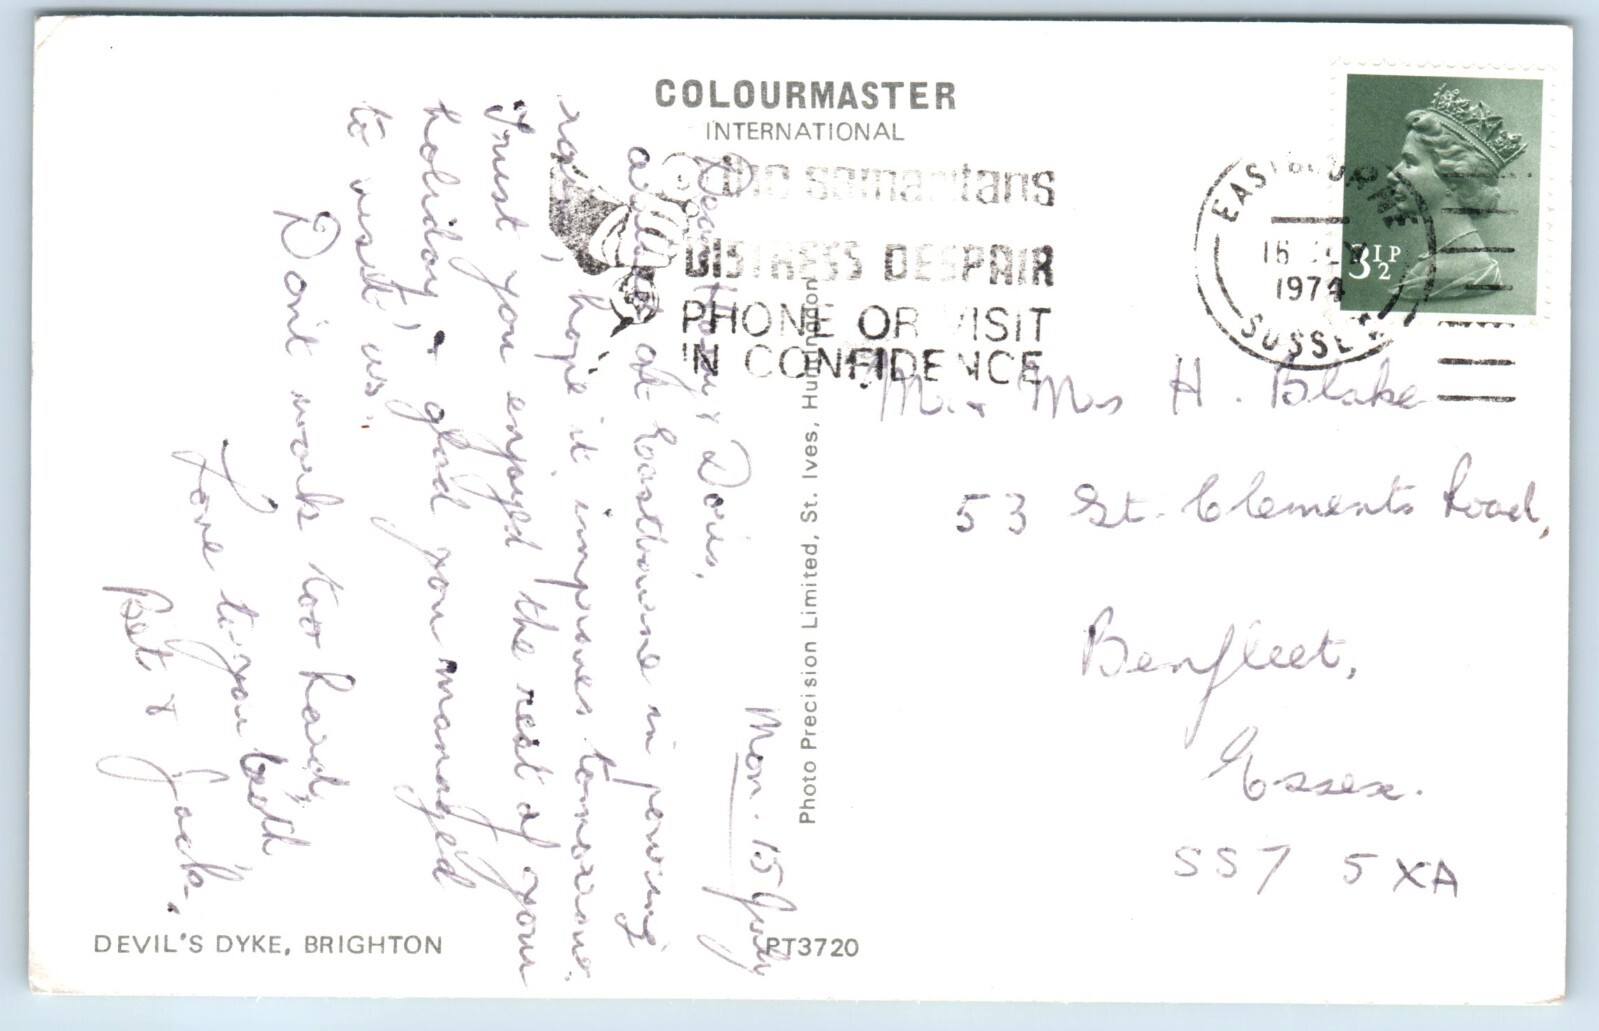 COLOURMASTER
INTERNATIONAL
the samaritans
DISTRESS DESPAIR
PHONE OR VISIT
IN CONFIDENCE
EASTBOURNE
16 JLY
1974
SUSSEX
3½P
Mon. 15 July
Dear Harry & Doris,
arrived at Eastbourne in pouring
rain, hope it improves tomorrow.
Trust you enjoyed the rest of your
holiday, & glad you managed
to visit us.
Don't work too hard,
Love to you both
Bet & Jack.
Mr. & Mrs H. Blake
53 St. Clements Road,
Benfleet,
Essex.
SS7 5XA
Photo Precision Limited, St. Ives, Huntingdon
DEVIL'S DYKE, BRIGHTON
PT3720